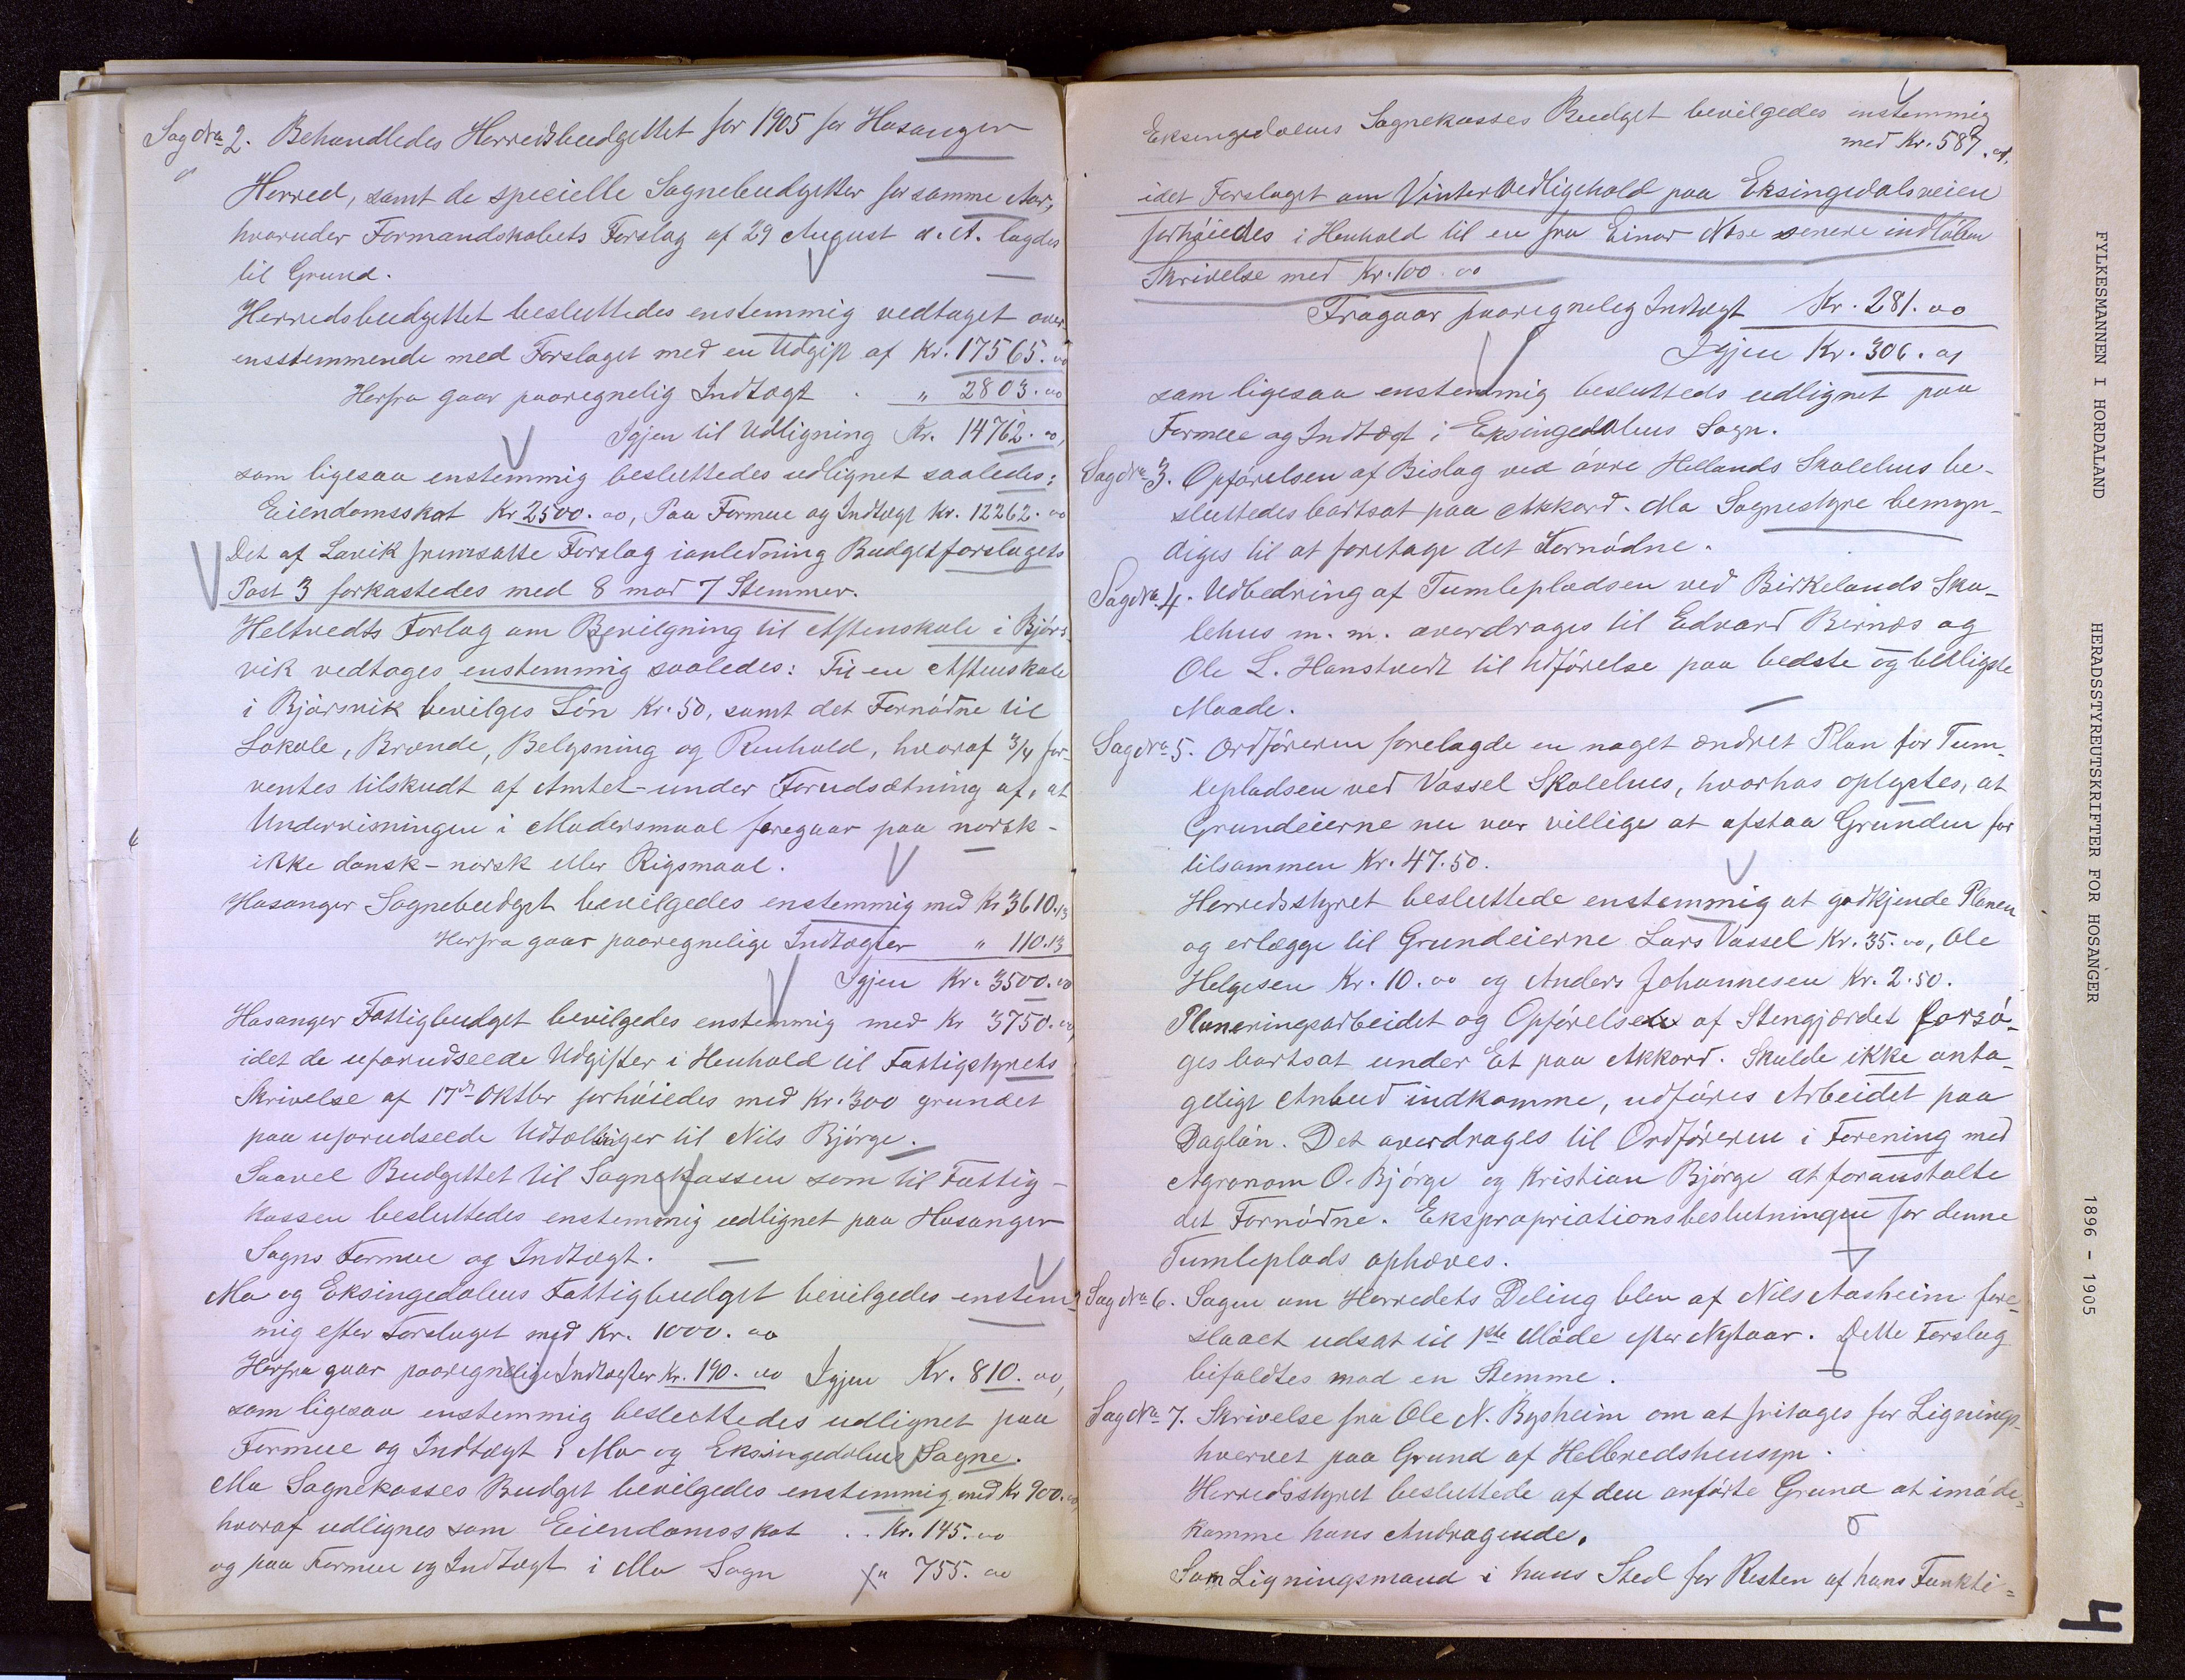 Sag No 2. Behandledes Herredsbudgettet for 1905 for Hosanger
Herred, samt de specielle Sognebudgetter for samme Aar,
hvorunder Formandskabets Forslag af 29 August d. A. lagdes
til Grund.
Herredsbudgettet besluttedes enstemmig vedtaget over-
ensstemmende med Forslaget med en Udgift af Kr. 17565.00
Herfra gaar paaregnelig Indtægt . „ 2803.00
Igjen til Udligning Kr. 14762.00,
som ligesaa enstemmig besluttedes udlignet saaledes:
Eiendomsskat Kr 2500.00, Paa Formue og Indtægt Kr. 12262.00
Det af Lavik fremsatte Forslag ianledning Budgetforslagets
Post 3 forkastedes med 8 mod 7 Stemmer.
Heltvedts Forlag om Bevilgning til Aftenskole i Bjørs-
vik vedtages enstemmig saaledes: Til en Aftenskole
i Bjørsvik bevilges Løn Kr. 50, samt det Fornødne til
Lokale, Brænde, Belysning og Renhold, hvoraf 3/4 for-
ventes tilskudt af Amtet - under Forudsætning af, at
Undervisningen i Modersmaal foregaar paa norsk -
ikke dansk-norsk eller Rigsmaal.
Hosanger Sognebudget bevilgedes enstemmig med Kr 3610.13
Herfra gaar paaregnelige Indtægter „ 110.13
Igjen Kr. 3500.00
Hosanger Fattigbudget bevilgedes enstemmig med Kr 3750.00,
idet de uforudseede Udgifter i Henhold til Fattigstyrets
Skrivelse af 17de Oktbr forhøiedes med Kr. 300 grundet
paa uforudseede Udtællinger til Nils Bjørge.
Saavel Budgettet til Sognekassen som til Fattig-
kassen besluttedes enstemmig udlignet paa Hosanger
Sogns Formue og Indtægt.
Mo og Eksingedalens Fattigbudget bevilgedes enstem-
mig efter Forslaget med Kr. 1000.00
Herfra gaar paaregnelige Indtægter Kr. 190.00 Igjen Kr. 810.00,
som ligesaa enstemmig besluttedes udlignet paa
Formue og Indtægt i Mo og Eksingedalens Sogne.
Mo Sognekasses Budget bevilgedes enstemmig med Kr 900.00,
hvoraf udlignes som Eiendomsskat . . Kr. 145.00
og paa Formue og Indtægt i Mo Sogn „ 755.00
Eksingedalens Sognekasses Budget bevilgedes enstemmig
med Kr. 587.01.
idet Forslaget om Vintervedligehold paa Eksingedalsveien
forhøiedes i Henhold til en fra Einar Nese senere indløben
Skrivelse med Kr. 100.00
Fragaar paaregnelig Indtægt Kr. 281.00
Igjen Kr. 306.01
som ligesaa enstemmig besluttedes udlignet paa
Formue og Indtægt i Eksingedalens Sogn.
Sag No 3. Opførelsen af Bislag ved øvre Hellands Skolehus be-
sluttedes bortsat paa Akkord. Mo Sognestyre bemyn-
diges til at foretage det Fornødne.
Sag No 4. Udbedring af Tumlepladsen ved Birkelands Sko-
lehus m. m. overdrages til Edvard Birnæs og
Ole L. Hanstvedt til Udførelse paa bedste og billigste
Maade.
Sag No 5. Ordføreren forelagde en noget ændret Plan for Tum-
lepladsen ved Vassel Skolehus, hvorhos oplystes, at
Grundeierne nu var villige at afstaa Grunden for
tilsammen Kr. 47.50.
Herredsstyret besluttede enstemmig at godkjende Planen
og erlægge til Grundeierne Lars Vassel Kr. 35.00, Ole
Helgesen Kr. 10.00 og Anders Johannesen Kr. 2.50.
Planeringsarbeidet og Opførelsen af Stengjærdet forsø-
ges bortsat under Et paa Akkord. Skulde ikke anta-
geligt Anbud indkomme, udføres Arbeidet paa
Dagløn. Det overdrages til Ordføreren i Forening med
Agronom O. Bjørge og Kristian Bjørge at foranstalte
det Fornødne. Ekspropriationsbeslutningen for denne
Tumleplads ophæves.
Sag No 6. Sagen om Herredets Deling blev af Nils Aasheim fore-
slaaet udsat til 1ste Møde efter Nytaar. Dette Forslag
bifaldtes mod en Stemme.
Sag No 7. Skrivelse fra Ole N. Bysheim om at fritages for Lignings-
hvervet paa Grund af Helbredshensyn.
Herredsstyret besluttede af den anførte Grund at imøde-
komme hans Andragende.
Som Ligningsmand i hans Sted for Resten af hans Funkti=
FYLKESMANNEN I HORDALAND
HERADSSTYREUTSKRIFTER FOR HOSANGER
1896 - 1905
4